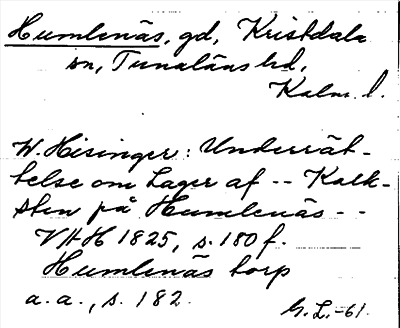 Humlenäs, gd, Kristdala
sn, Tunaläns hd,
Kalm. l.
W. Hisinger: Underrät-
telse om Lager af -- Kalk-
sten på Humlenäs --
VAH 1825, s. 180 f.
Humlenäs torp
a. a., s. 182.
G. L. -61.